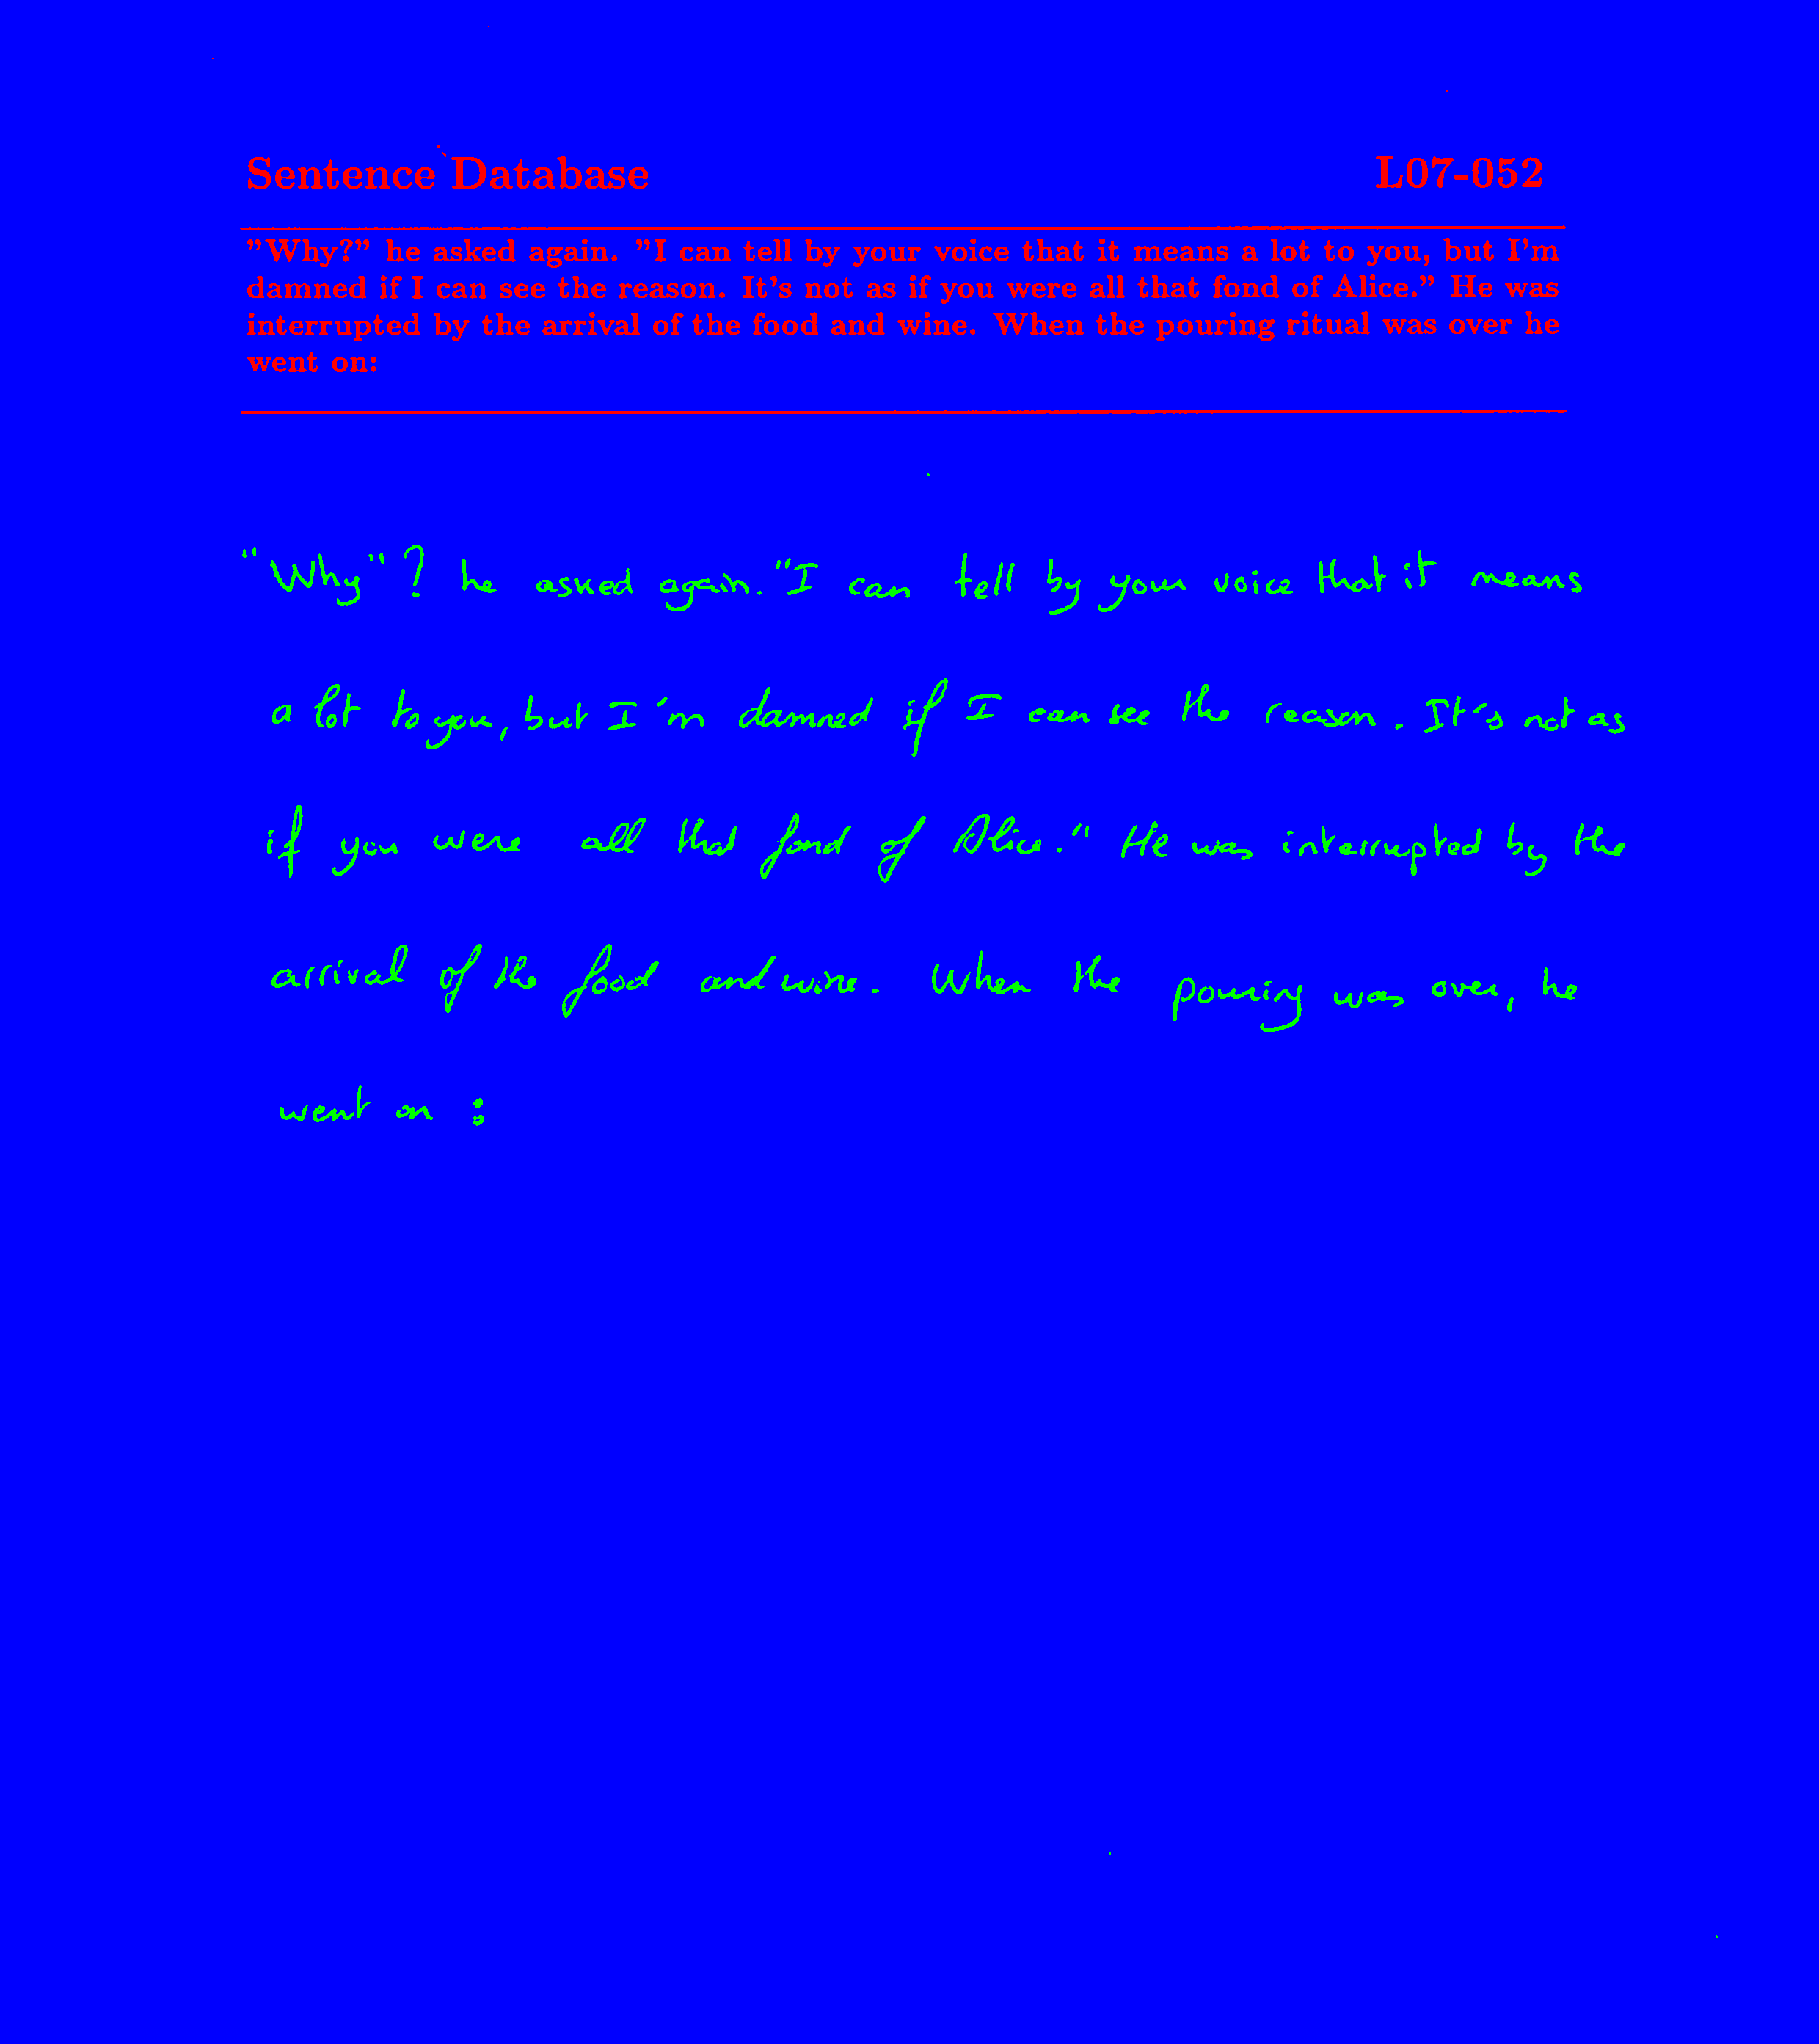 Sentence Database L07-052
"Why?" he asked again. "I can tell by your voice that it means a lot to you, but I'm
damned if I can see the reason. It's not as if you were all that fond of Alice." He was
interrupted by the arrival of the food and wine. When the pouring ritual was over he
went on:
"Why"? he asked again. "I can tell by your voice that it means
a lot to you, but I'm damned if I can see the reason. It's not as
if you were all that fond of Alice." He was interrupted by the
arrival of the food and wine. When the pouring was over, he
went on :